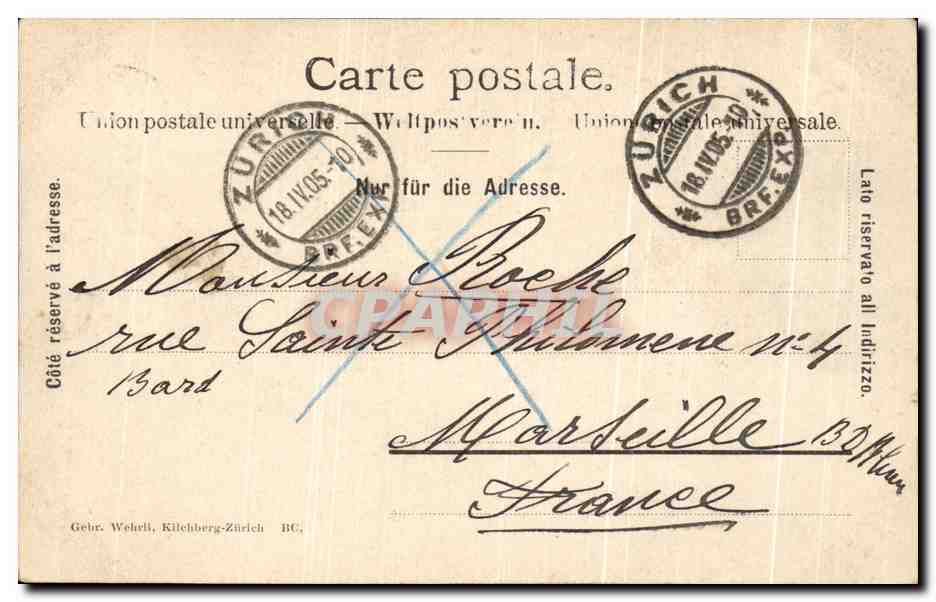 Carte postale.
Union postale universelle. — Weltpostverein. Unione postale universale.
Nur für die Adresse.
Côté réservé à l'adresse.
Lato riservato all Indirizzo.
ZÜRICH
18.IV.05.-10
BRF.EXP.
ZÜRICH
18.IV.05.-10
BRF.EXP.
CPAPHIL
Monsieur Roche
rue Sainte Philomene n° 4
Bard
Marseille B D Rhône
France
Gebr. Wehrli, Kilchberg-Zürich BC.